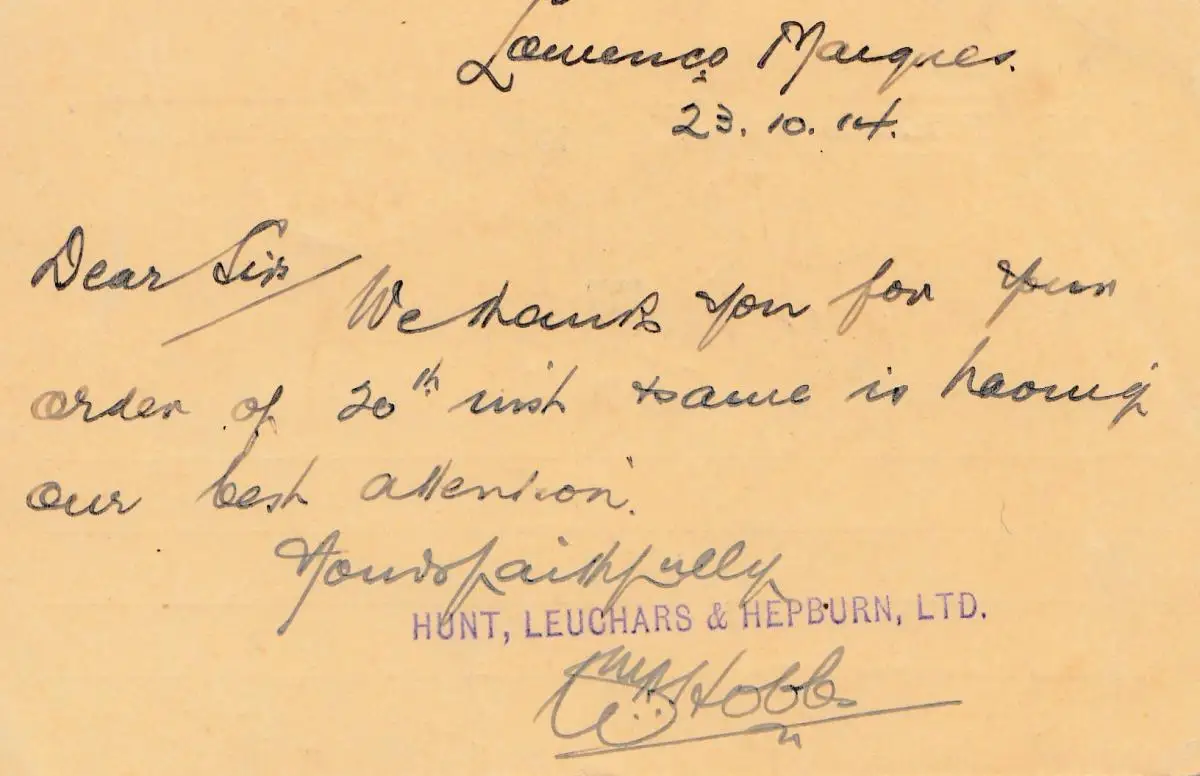 Lourenço Marques.
23.10.14.
Dear Sir
We thank you for your
order of 20th inst & same is having
our best attention.
Yours faithfully
HUNT, LEUCHARS & HEPBURN, LTD.
Hobbs